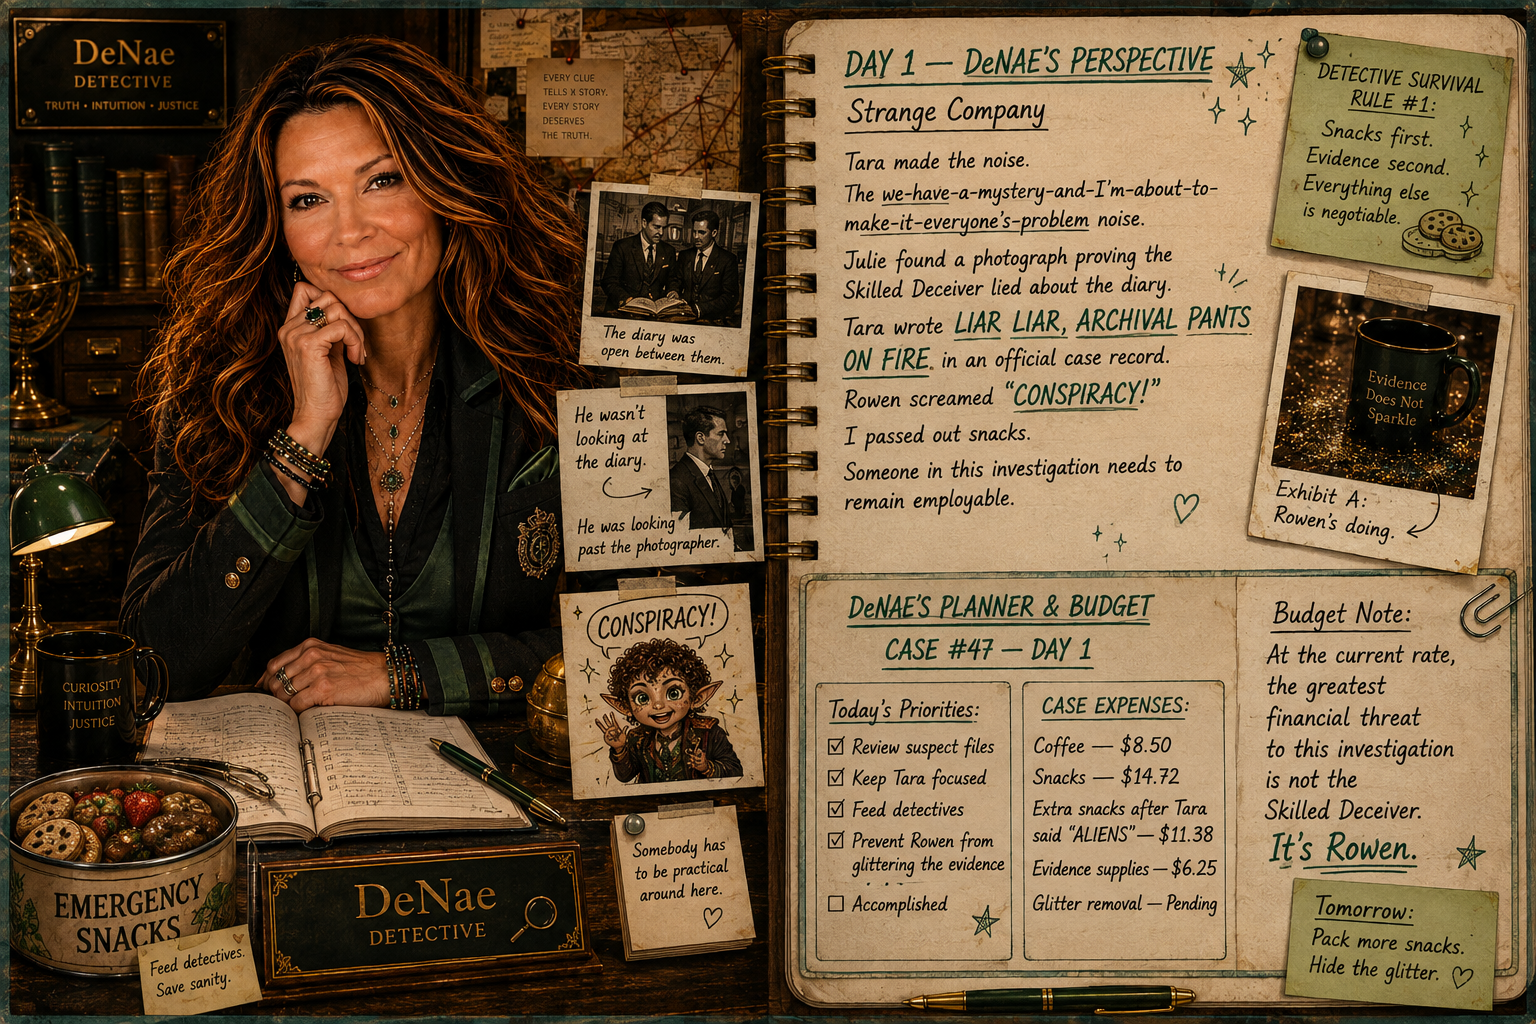 DeNae
DETECTIVE
TRUTH • INTUITION • JUSTICE
EVERY CLUE
TELLS A STORY.
EVERY STORY
DESERVES
THE TRUTH.
The diary was
open between them.
He wasn't
looking at
the diary.
He was looking
past the photographer.
CONSPIRACY!
Somebody has
to be practical
around here.
CURIOSITY
INTUITION
JUSTICE
EMERGENCY
SNACKS
Feed detectives.
Save sanity.
DeNae
DETECTIVE
DAY 1 — DeNAE'S PERSPECTIVE
Strange Company
Tara made the noise.
The we-have-a-mystery-and-I'm-about-to-
make-it-everyone's-problem noise.
Julie found a photograph proving the
Skilled Deceiver lied about the diary.
Tara wrote LIAR LIAR, ARCHIVAL PANTS
ON FIRE. in an official case record.
Rowen screamed "CONSPIRACY!"
I passed out snacks.
Someone in this investigation needs to
remain employable.
DETECTIVE SURVIVAL
RULE #1:
Snacks first.
Evidence second.
Everything else
is negotiable.
Evidence
Does Not
Sparkle
Exhibit A:
Rowen's doing.
DeNAE'S PLANNER & BUDGET
CASE #47 — DAY 1
Today's Priorities:
☑ Review suspect files
☑ Keep Tara focused
☑ Feed detectives
☑ Prevent Rowen from
glittering the evidence
☐ Accomplished
CASE EXPENSES:
Coffee — $8.50
Snacks — $14.72
Extra snacks after Tara
said "ALIENS" — $11.38
Evidence supplies — $6.25
Glitter removal — Pending
Budget Note:
At the current rate,
the greatest
financial threat
to this investigation
is not the
Skilled Deceiver.
It's Rowen.
Tomorrow:
Pack more snacks.
Hide the glitter.